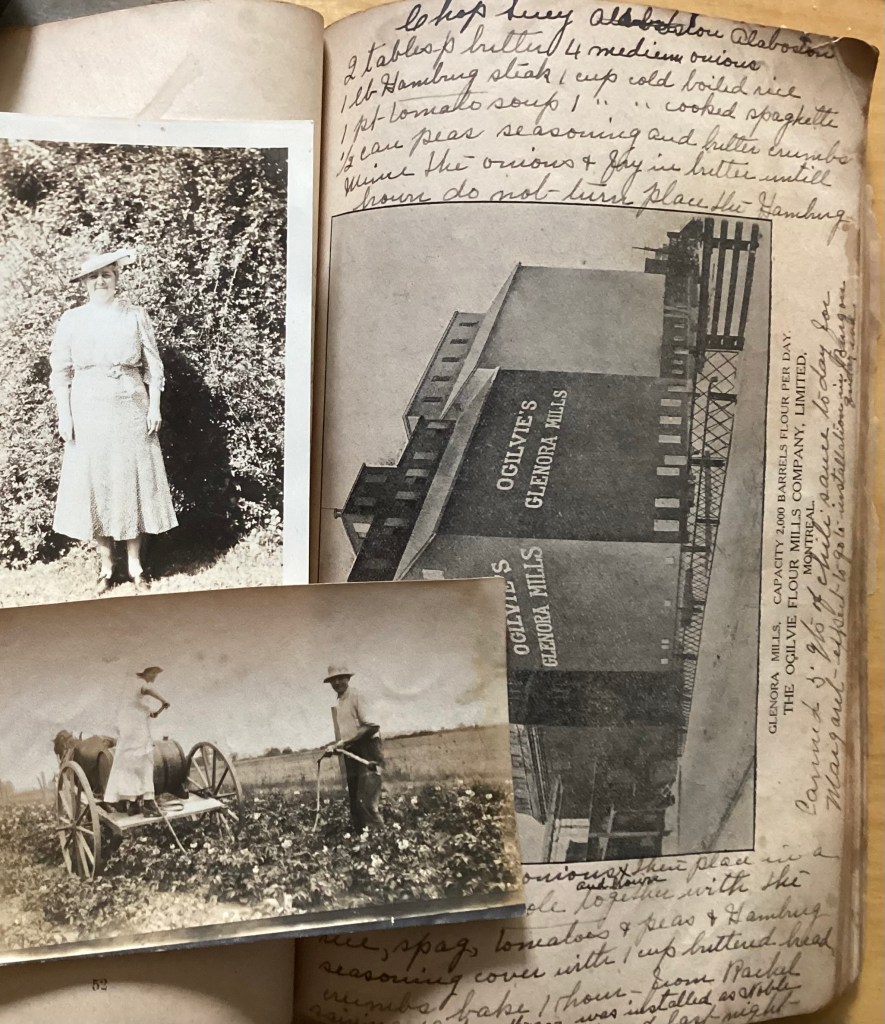 Chop Suey Alabaston
2 tablesp butter 4 medium onions
1 lb Hamburg steak 1 cup cold boiled rice
1 pt tomato soup 1 " " cooked spaghette
½ can peas seasoning and butter crumbs
Mince the onions & fry in butter untill
brown do not turn place the Hamburg
OGILVIE'S
GLENORA MILLS
OGILVIE'S
GLENORA MILLS
GLENORA MILLS, CAPACITY 2,000 BARRELS FLOUR PER DAY.
THE OGILVIE FLOUR MILLS COMPANY, LIMITED,
MONTREAL.
Canned 5 qts of chili sauce today for
Margaret - expect to go to installation in
onions & then place in a
and brown
together with the
rice, spag, tomatoes & peas & Hamburg
seasoning cover with 1 cup buttered bread
crumbs bake 1 hour - from Rachel
was installed as Noble
last night
52